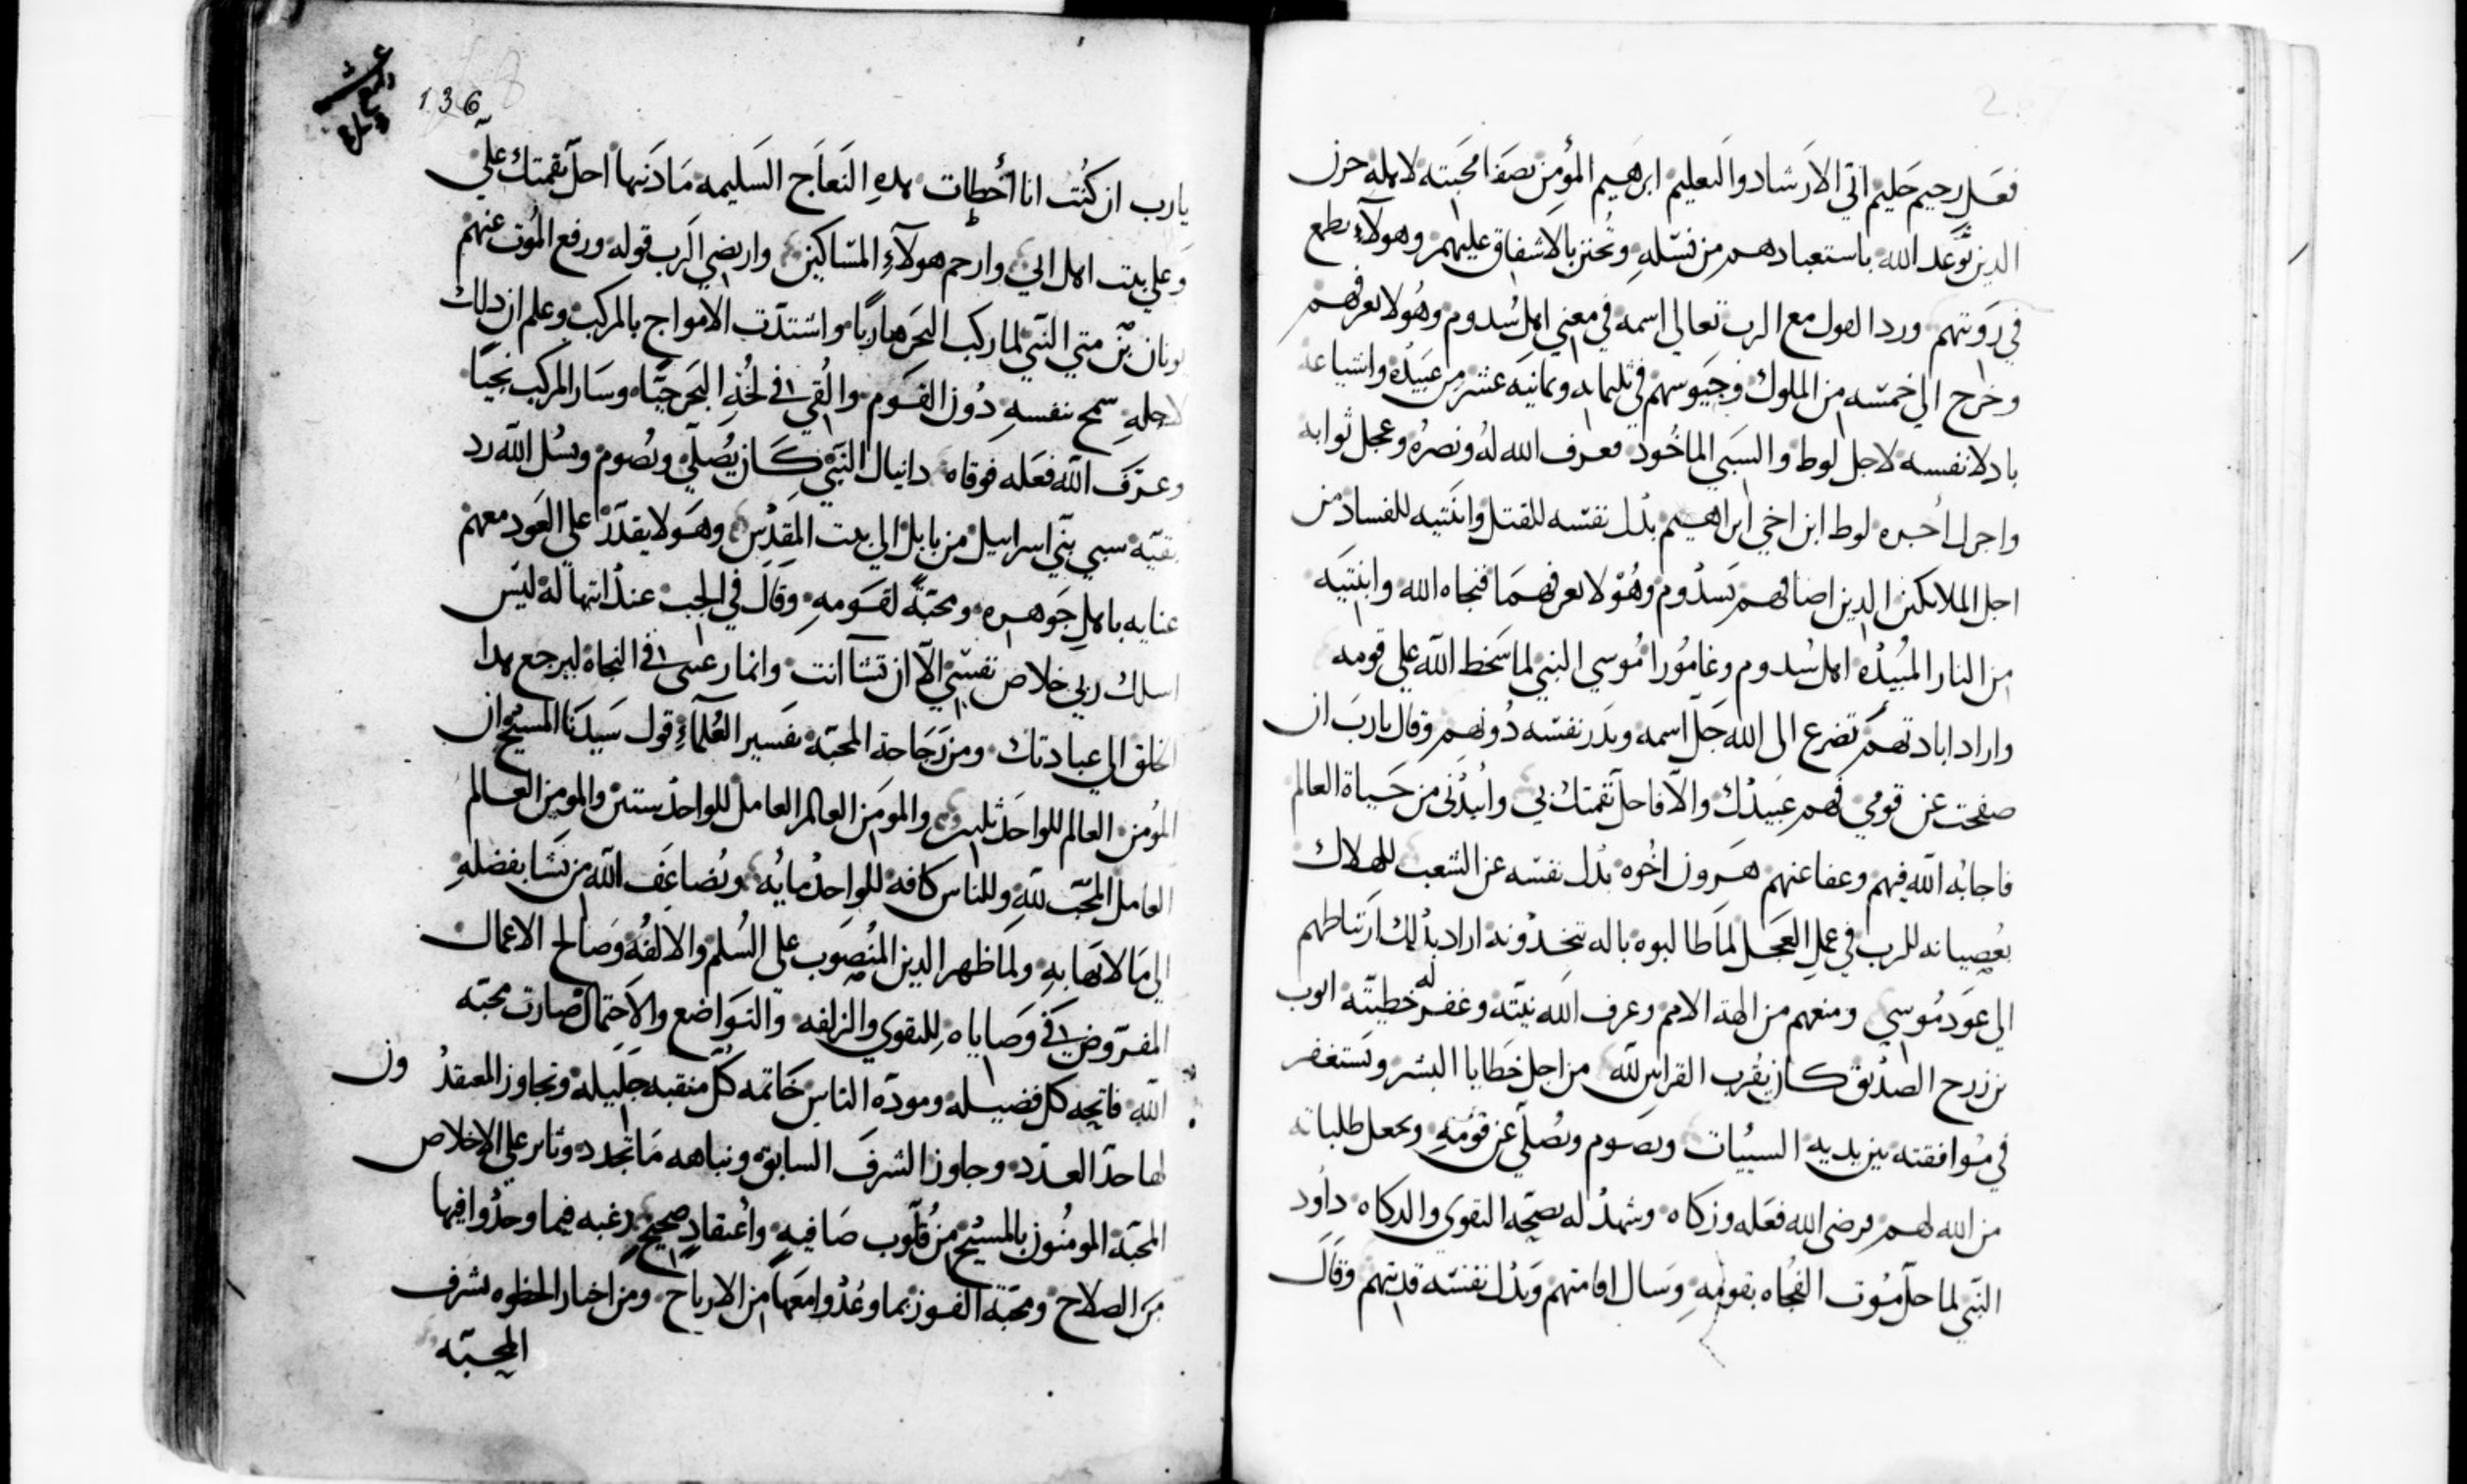 فعل رحيم حليم اتي الارشاد والتعليم ابرهيم المؤمن بصفا محبته لاهله حزن
الدين توعد الله باستعبادهم من نسله وتحنن بالاشفاق عليهم وهولآء بطمع
في رويتهم ورد القول مع الرب تعالي اسمه في معني اهل سدوم وهو لا يعرفهم
وخرج الي خمسه من الملوك وجيوسهم في ثلثمايه وثمانيه عشر من عبيده واشياعه
بادلا نفسه لاجل لوط والسبي الماخود فعرف الله له ونصره وعجل ثوابه
واجزل اجره لوط ابن اخي ابراهيم بدل نفسه للقتل وابنتيه للفساد من
اجل الملايكين الدين اضافهم بسدوم وهو لا يعرفهما فنجاه الله وابنتيه
من النار المبيده اهل سدوم وغامورا موسي النبي لما سخط الله علي قومه
واراد ابادتهم تضرع الى الله جل اسمه وبدر نفسه دونهم وقال يارب ان
صفحت عن قومي فهم عبيدك والا فاحل نقمتك بي وابيدني من حياة العالم
فاجابه الله فيهم وعفا عنهم هرون اخوه بدل نفسه عن الشعب للهلاك
بعصيانه للرب في عمل العجل لما طالبوه باله يتخدونه اراد بدلك ارتباطهم
الي عود موسي ومنعهم من الهة الامم وعرف الله نيته وغفر له خطيته ايوب
بن زرح الصديق كان يقرب القرابين لله من اجل خطايا البشر ويستغفر
في موافقته بين يديه السيئات ويصوم ويصلي عن قومه ويجعل طلباته
من الله لهم فرضى الله فعله وزكاه وشهد له بصحة التقوى والدكاه داود
النبي لما حل موت الفجاه بقومه وسال اقامتهم وبدل نفسه فديتهم وقال
136
يارب ان كنت انا أخطات هده النعاج السليمه ما دنبها احل نقمتك علي
وعلي بيت اهل ابي وارحم هولآء المساكين وارضي الرب قوله ورفع الموت عنهم
يونان بن متي النبي لما ركب البحر هاربا واشتدت الامواج بالمركب وعلم ان دلك
لاجله سمح بنفسه دون القوم والقي في لجة البحر حيا وسار المركب نجيا
وعرف الله فعله فوقاه دانيال النبي كان يصلي ويصوم ويسل الله رد
بقية سبي بني اسراييل من بابل الي بيت المقدس وهو لا يقدر علي العود معهم
عنايه باهل جوهره ومحبة لقومه وقال في الجب عند ابتهاله ليس
اسلك ربي خلاص نفسي الا ان تشا انت وانما رغبتي في النجاة ليرجع هدا
الخلق الي عبادتك ومن رجاحة المحبة تفسير العلمآء قول سيدنا المسيح ان
المؤمن العالم للواحد ثلثين والمومن العالم العامل للواحد ستين والمومن العالم
العامل المحب لله وللناس كافه للواحد مايه ويضاعف الله من يشا بفضله
الي ما لا نهابه ولما ظهر الدين المنصوب علي السلم والالفه وصالح الاعمال
المفروض في وصاياه للتقوي والزلفه والتواضع والاحتمال صارت محبة
الله فاتحه كل فضيله ومودة الناس خاتمه كل منقبه جليله وتجاوز المعتقدون
لها حد العدد وجاوز الشرف السابق ونباهه ما تجدد وثابر علي الاخلاص
المحبة المومنون بالمسيح من قلوب صافيه واعتقاد صحيح رغبه فيما وجدوا فيها
من الصلاح ومحبة الفوز بما وعدوا معها من الارباح ومن اخبار الحظوه بشرف
المحبته